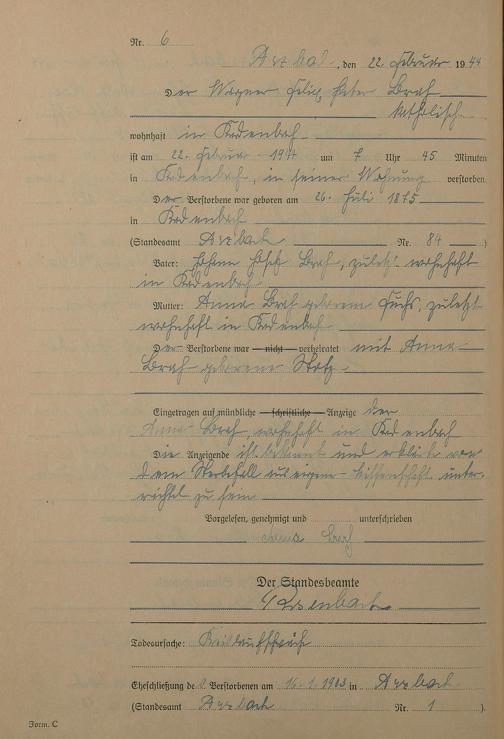 Nr. 6
Arzbach, den 22. Februar 1944
Der Wagner Filip Peter Graf
katholisch
wohnhaft in Kadenbach
ist am 22. Februar 1944 um 7 Uhr 45 Minuten
in Kadenbach, in seiner Wohnung verstorben.
Der Verstorbene war geboren am 26. Juli 1875
in Kadenbach
(Standesamt Arzbach Nr. 84)
Vater: Johann Graf, zuletzt wohnhaft
in Kadenbach
Mutter: Anna Graf geborene Fuchs, zuletzt
wohnhaft in Kadenbach
Der Verstorbene war nicht verheiratet mit Anna
Graf geborene
Eingetragen auf mündliche schriftliche Anzeige der
Anna Graf, wohnhaft in Kadenbach
Die Anzeigende ist bekannt und erklärte von
dem Sterbefall aus eigener Wissenschaft unter-
richtet zu sein
Vorgelesen, genehmigt und unterschrieben
Anna Graf
Der Standesbeamte
Todesursache:
Eheschließung de Verstorbenen am 16.1.1903 in Arzbach
(Standesamt Arzbach Nr. 1).
Form. C